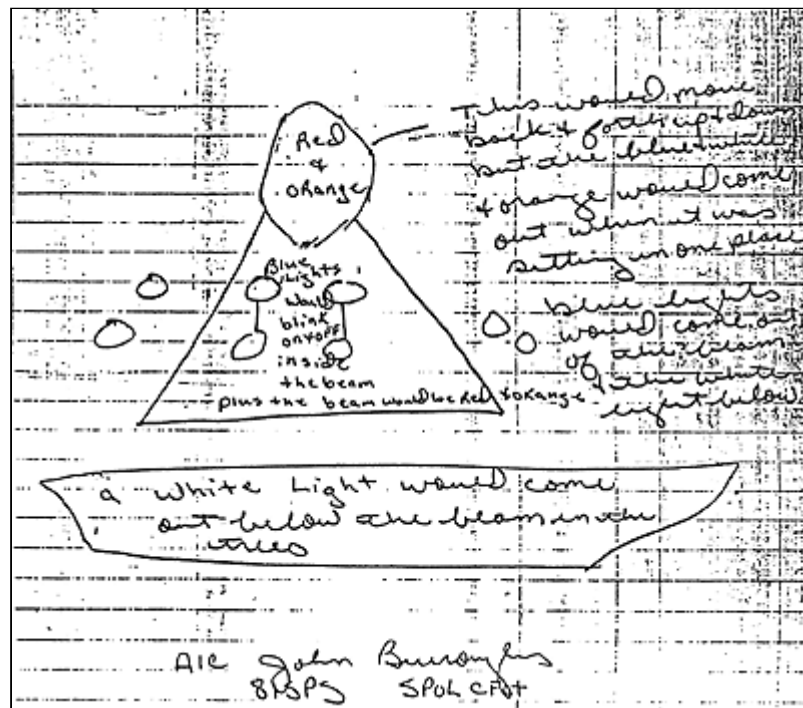 Red
&
orange
This would move
back & forth up & down
but the blue & white
& orange would come
out when it was
sitting in one place
Blue
Lights
would
blink
on & off
inside
the beam
plus the beam would be Red & orange
blue lights
would come out
of the beam
& the white
light below
a White Light would come
out below the beam in the
trees
A1C John Burroughs
81SPS